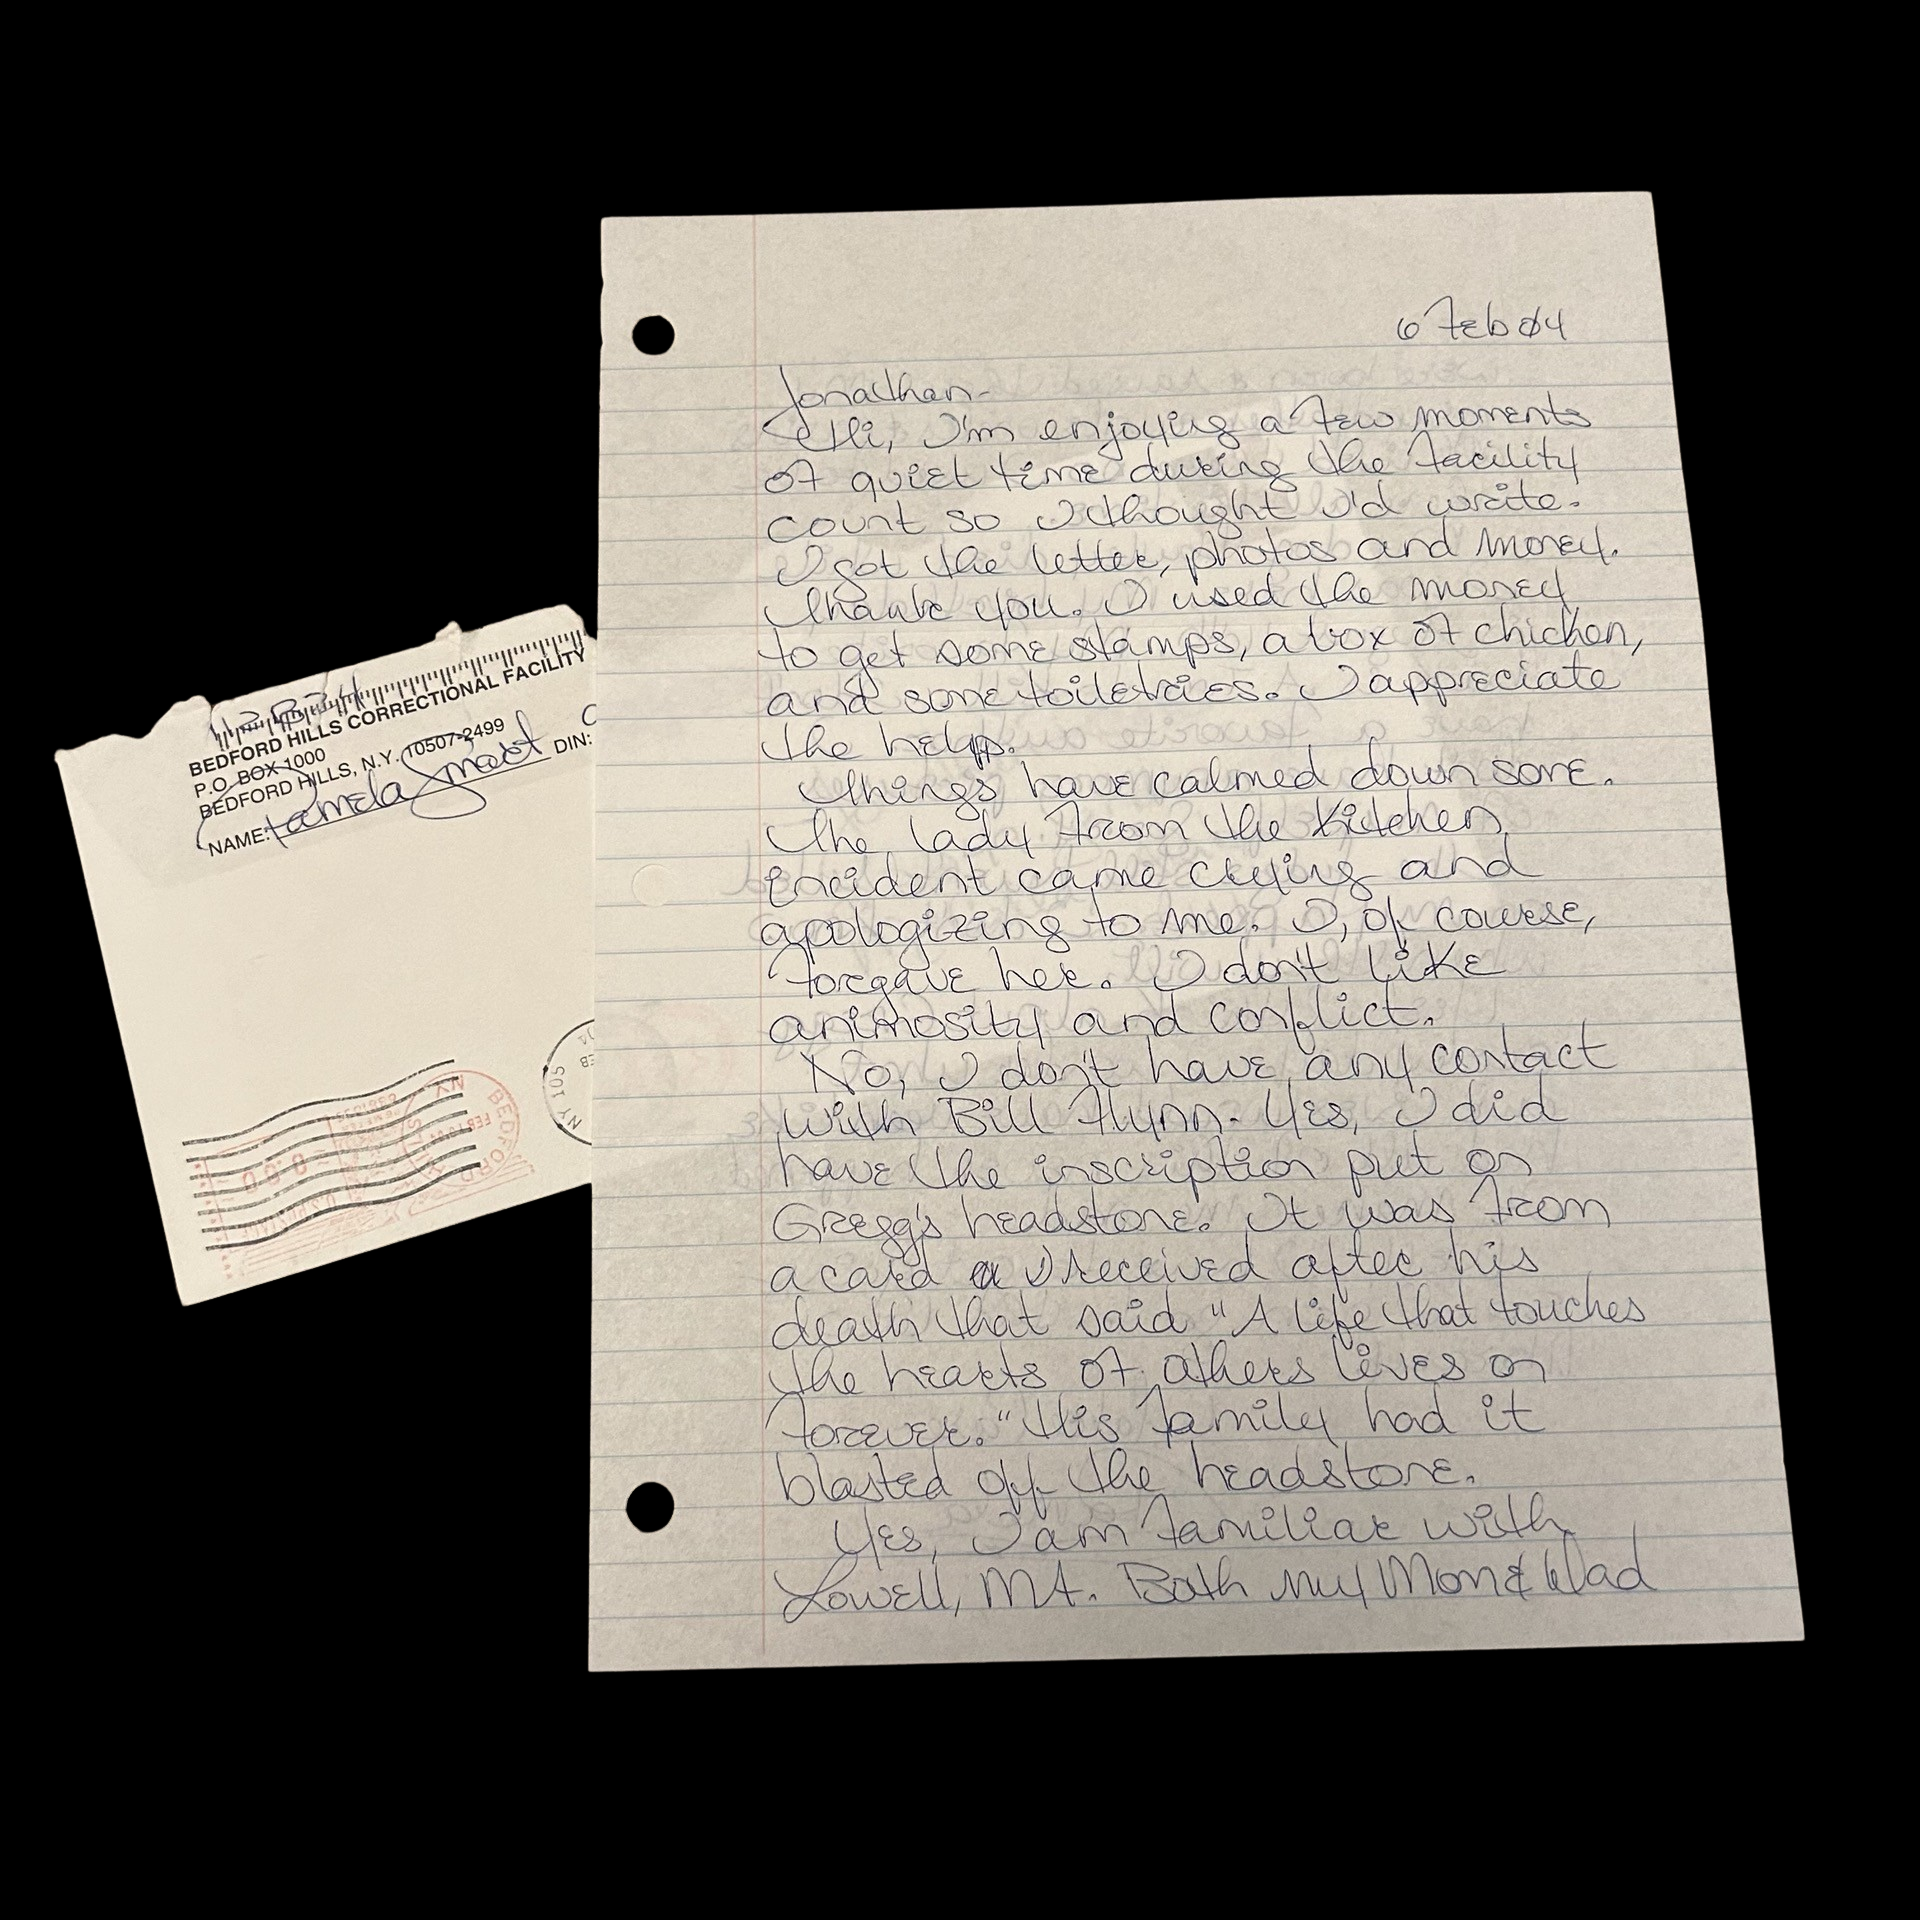 BEDFORD HILLS CORRECTIONAL FACILITY
P.O. BOX 1000
BEDFORD HILLS, N.Y. 10507-2499
NAME: Pamela Smart DIN:
NY 105
BEDFORD
NY
FEB
6 Feb 04
Jonathan-
Hi, I'm enjoying a few moments
of quiet time during the facility
count so I thought I'd write.
I got the letter, photos and money.
Thank you. I used the money
to get some stamps, a box of chicken,
and some toiletries. I appreciate
the help.
Things have calmed down some.
The lady from the kitchen
incident came crying and
apologizing to me. I, of course,
forgave her. I don't like
animosity and conflict.
No, I don't have any contact
with Bill Flynn. Yes, I did
have the inscription put on
Gregg's headstone. It was from
a card I received after his
death that said "A life that touches
the hearts of others lives on
forever." His family had it
blasted off the headstone.
Yes, I am familiar with
Lowell, MA. Both my Mom & Dad